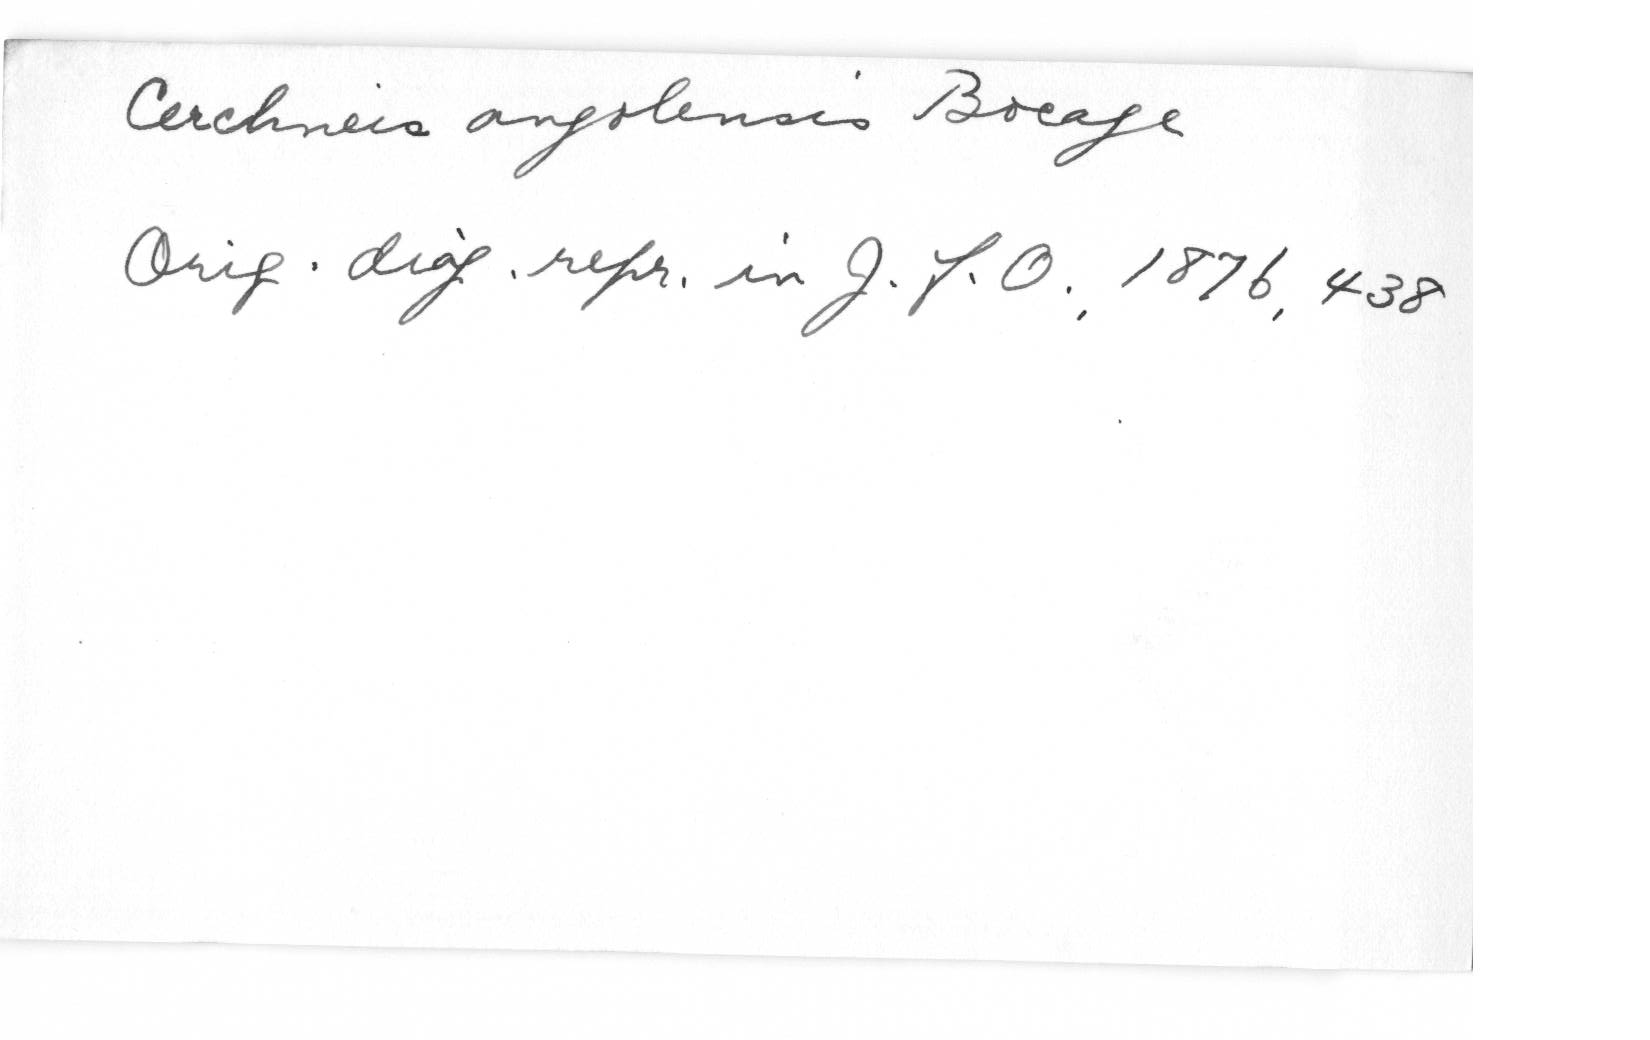 Cerchneis angolensis Bocage
Orig. diag. repr. in J. f. O., 1876, 438